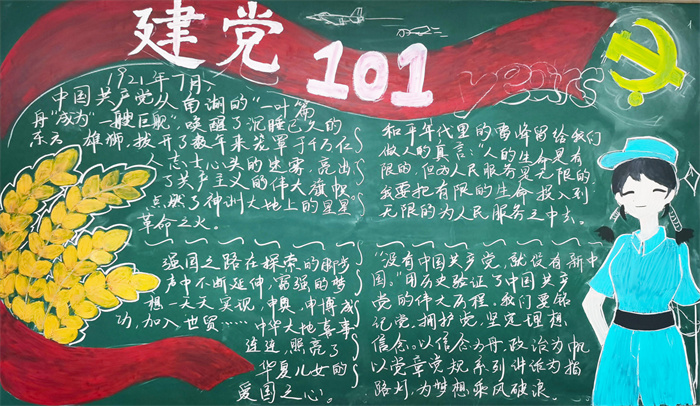 建党
101
years
1921年7月,
中国共产党从南湖的“一叶篇
舟”成为“一艘巨舵”,唤醒了沉睡已久的
东方雄狮,拨开了数年来笼罩于千万仁
人志士心头的迷雾,亮出
了共产主义的伟大旗帜
点燃了神洲大地上的星星
革命之火。
和平年代里的雷峰留给我们
做人的真言:“人的生命是有
限的,但为人民服务是无限的
我要把有限的生命投入到
无限的为人民服务之中去。
强国之路在探索的脚步
声中不断延伸,富强的梦
想一天天实现,申奥,申博成
功,加入世贸……中华大地喜事
连连,照亮了
华夏儿女的
爱国之心。
“没有中国共产党,就没有新中
国。”用历史验证了中国共产
党的伟大历程。我们要铭
记党,拥护党,坚定理想
信念。以信念为舟,政治为帆
以党章党规系列讲话为指
路灯,为梦想乘风破浪。